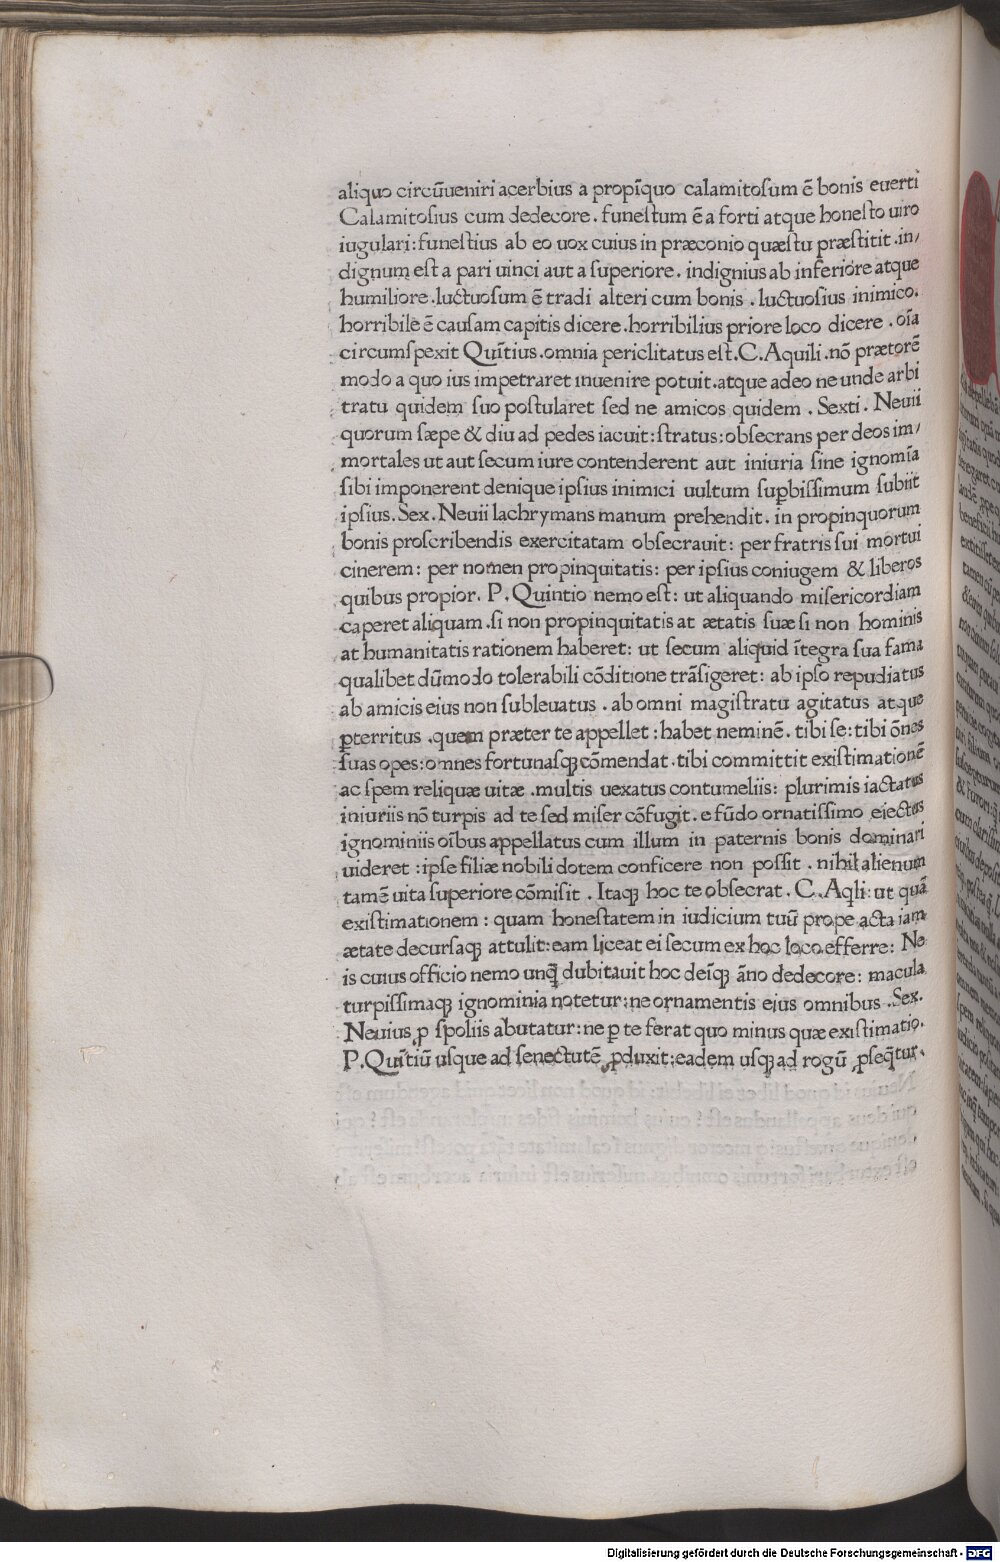 aliquo circũueniri acerbius a propĩquo calamitoſum ẽ bonis euerti
Calamitoſius cum dedecore. funeſtum ẽ a forti atque honeſto uiro
iugulari: funeſtius ab eo uox cuius in præconio quæſtu præſtitit. in/
dignum eſt a pari uinci aut a ſuperiore. indignius ab inferiore atque
humiliore. luctuoſum ẽ tradi alteri cum bonis. luctuoſius inimico.
horribile ẽ cauſam capitis dicere. horribilius priore loco dicere. oĩa
circumſpexit Quĩtius. omnia periclitatus eſt. C. Aquili. nõ prætorẽ
modo a quo ius impetraret inuenire potuit. atque adeo ne unde arbi
tratu quidem ſuo poſtularet ſed ne amicos quidem. Sexti. Neuii
quorum ſæpe & diu ad pedes iacuit: ſtratus: obſecrans per deos im/
mortales ut aut ſecum iure contenderent aut iniuria ſine ignomĩa
ſibi imponerent denique ipſius inimici uultum ſuꝑbiſſimum ſubiit
ipſius. Sex. Neuii lachrymans manum prehendit. in propinquorum
bonis proſcribendis exercitatam obſecrauit: per fratris ſui mortui
cinerem: per nomen propinquitatis: per ipſius coniugem & liberos
quibus propior. P. Quintio nemo eſt: ut aliquando miſericordiam
caperet aliquam. ſi non propinquitatis at ætatis ſuæ ſi non hominis
at humanitatis rationem haberet: ut ſecum aliquid ĩtegra ſua fama
qualibet dũmodo tolerabili cõditione trãſigeret: ab ipſo repudiatus
ab amicis eius non ſubleuatus. ab omni magiſtratu agitatus atque
ꝑterritus. quem præter te appellet: habet neminẽ. tibi ſe: tibi õnes
ſuas opes: omnes fortunaſqꝫ cõmendat. tibi committit exiſtimationẽ
ac ſpem reliquæ uitæ. multis uexatus contumeliis: plurimis iactatus
iniuriis nõ turpis ad te ſed miſer cõfugit. e fũdo ornatiſſimo eiectus
ignominiis oĩbus appellatus cum illum in paternis bonis dominari
uideret: ipſe filiæ nobili dotem conficere non poſſit. nihil alienum
tamẽ uita ſuperiore cõmiſit. Itaqꝫ hoc te obſecrat. C. Aqli: ut quã
exiſtimationem: quam honeſtatem in iudicium tuũ prope acta iam
ætate decurſaqꝫ attulit: eam liceat ei ſecum ex hoc loco efferre: Ne
is cuius officio nemo unq̃ dubitauit hoc deĩqꝫ ãno dedecore: macula
turpiſſimaqꝫ ignominia notetur: ne ornamentis eius omnibus. Sex.
Neuius ꝓ ſpoliis abutatur: ne ꝑ te ferat quo minus quæ exiſtimatio.
P. Quĩtiũ uſque ad ſenectutẽ ꝓduxit: eadem uſqꝫ ad rogũ ꝓſeq̃tur.
Digitalisierung gefördert durch die Deutsche Forschungsgemeinschaft - DFG